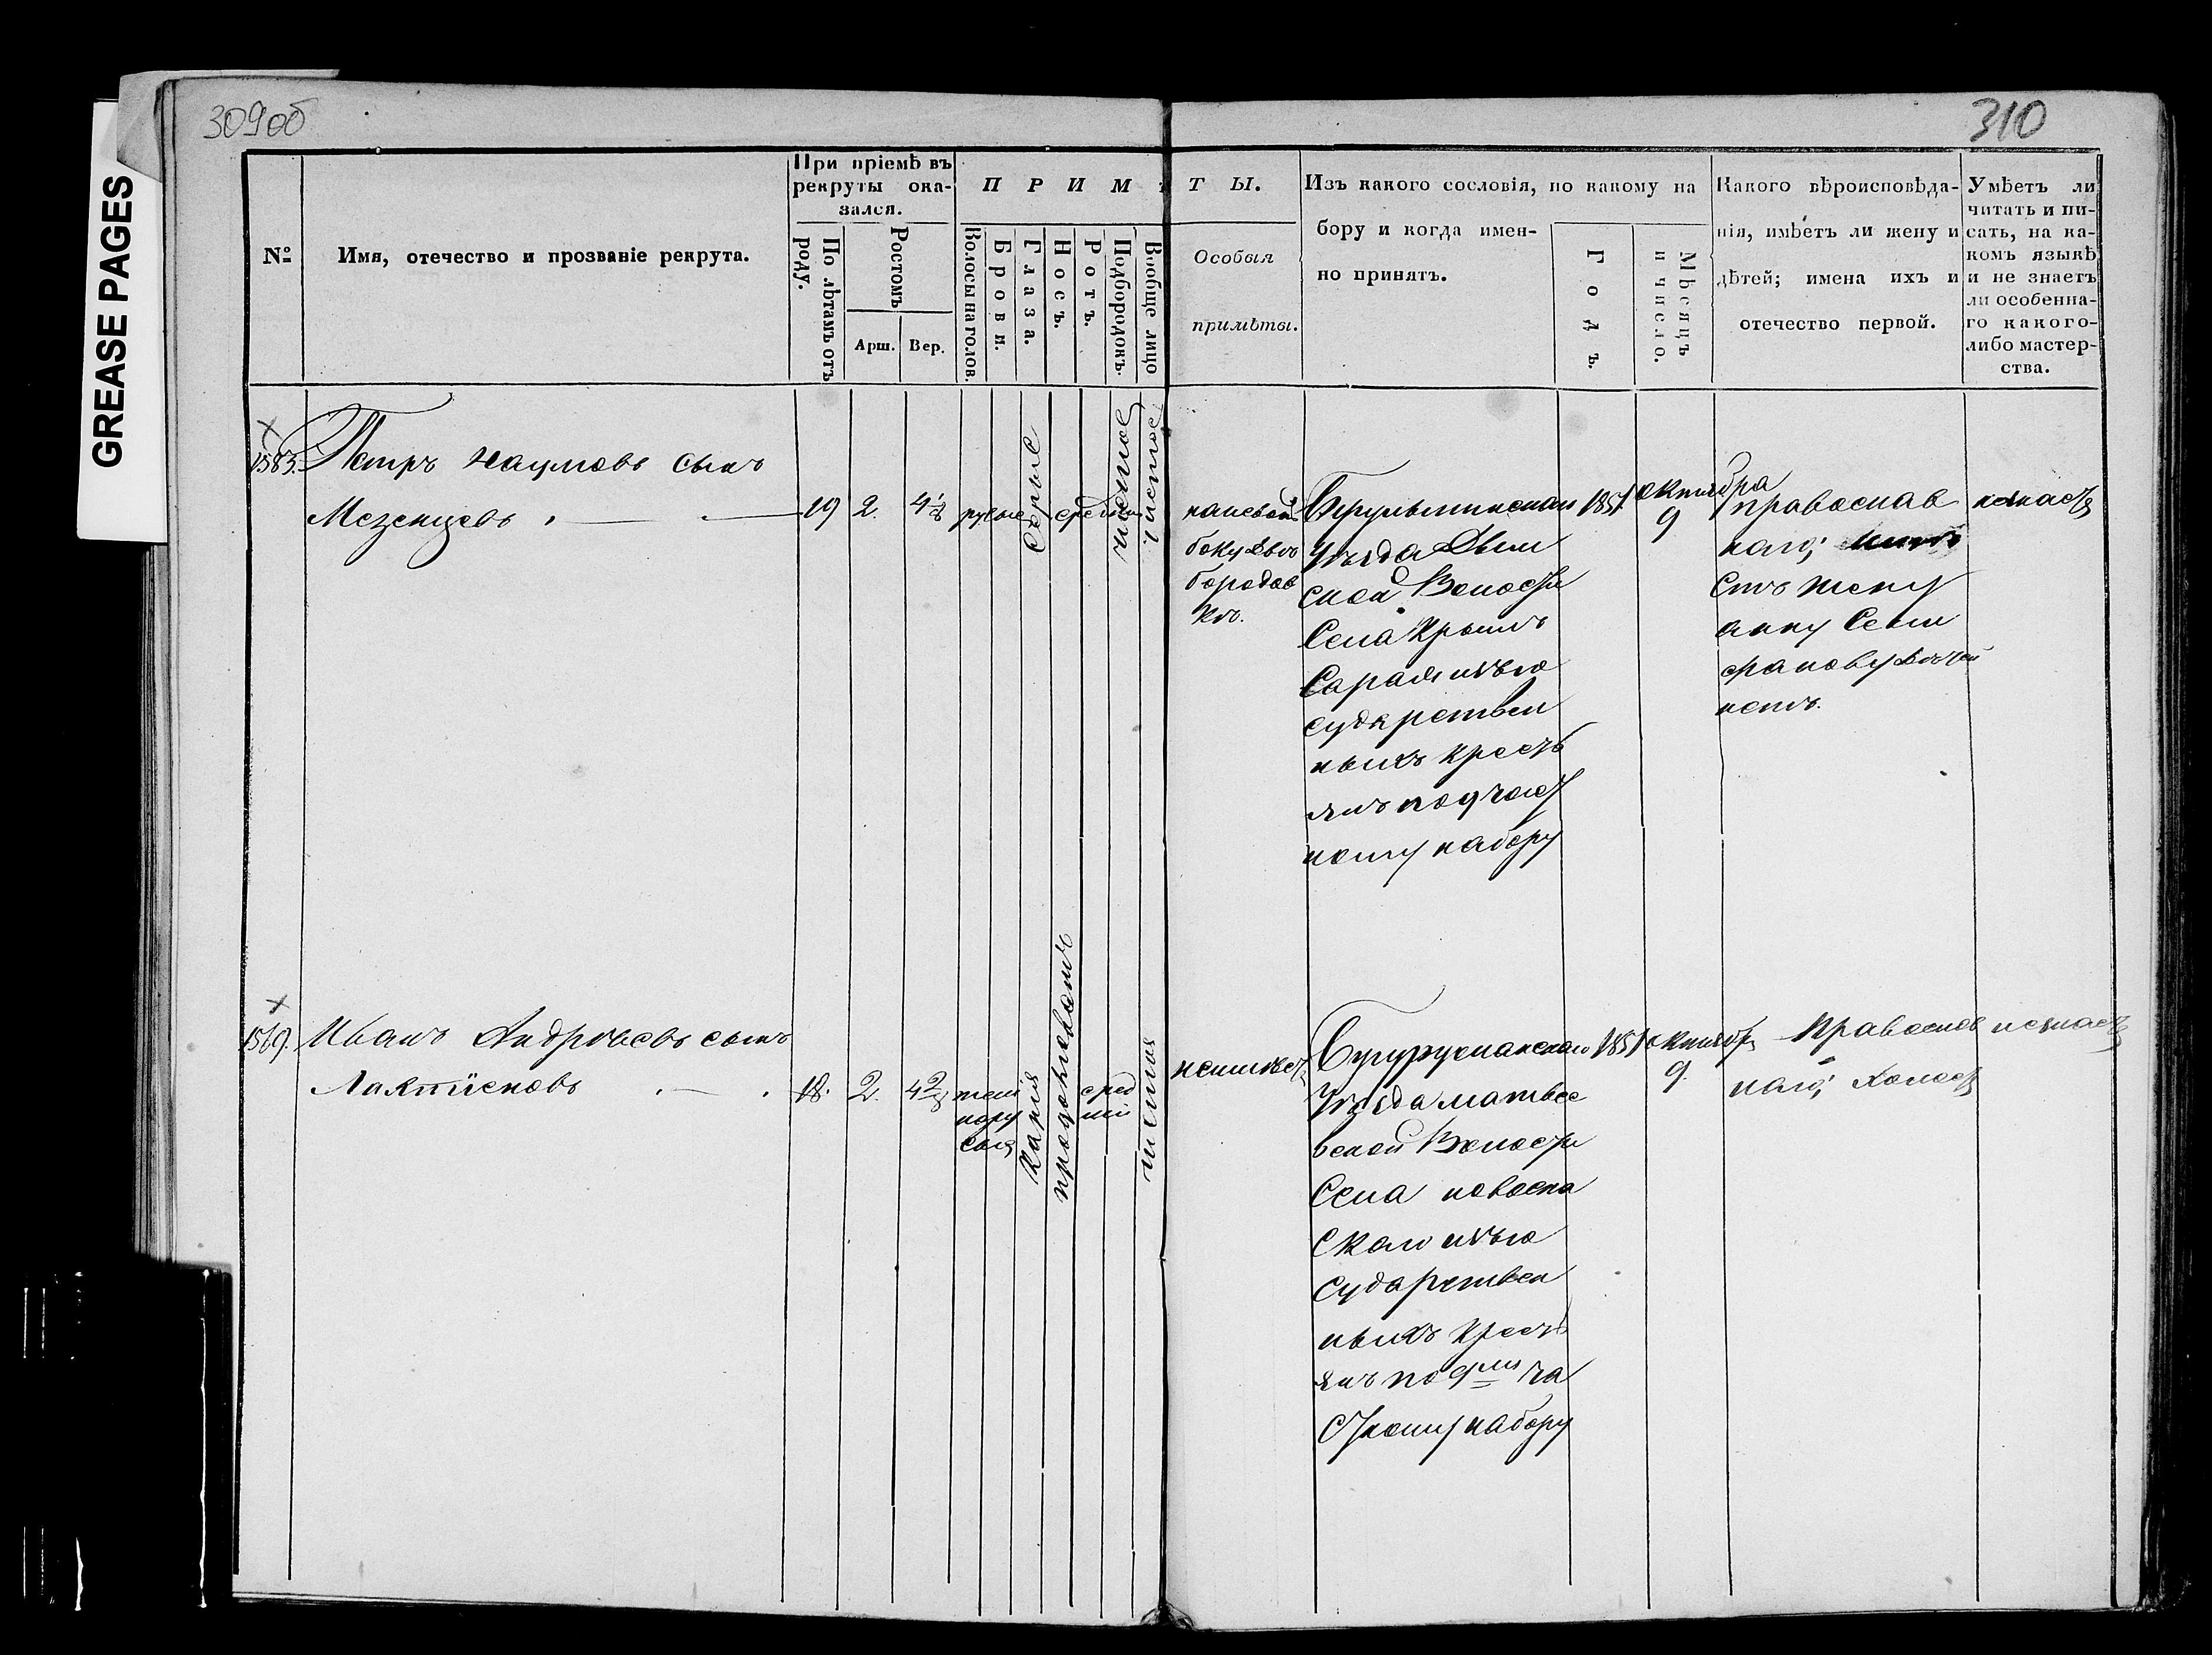 309об
310
GREASE PAGES
№
Имя, отечество и прозваніе рекрута.
При пріемѣ въ
рекруты ока-
зался.
По лѣтамъ отъ
роду.
Ростомъ
Арш.
Вер.
ПРИМѢТЫ.
Волосы на голов.
Брови.
Глаза.
Носъ.
Ротъ.
Подбородокъ.
Вообще лицо
Особыя
примѣты.
Изъ какого сословія, по какому на
бору и когда имен-
но принятъ.
Годъ.
Мѣсяцъ
и число.
Какого вѣроисповѣда-
нія, имѣетъ ли жену и
дѣтей; имена ихъ и
отечество первой.
Умѣетъ ли
читать и пи-
сать, на ка-
комъ языкѣ
и не знаетъ
ли особенна-
го какого-
либо мастер-
ства.
1583.
Петръ Наумовъ сынъ
Мезенцевъ
19
2.
русые
серые
средній
чистое
на левом
боку две
бородав
ки.
Уезда
ской Волости
Села Крымъ
Сарая изъ го
сударствен
ныхъ кресть
янъ по 9 част
ному набору
1851
Октября
9
Православ
наго;
жену
анну
детей
нетъ.
незнаетъ
1569.
Иванъ Андреевъ сынъ
18.
2.
темно
ру
сыя
карія
продолговатъ
сред
ній
чистое
неимеетъ
Бугурусланскаго
Уезда матвее
вской Волости
Села
изъ го
сударствен
ныхъ кресть
янъ по 9му ча
стному набору
1851
Октября
9.
Православ
наго; Холостъ
незнаетъ